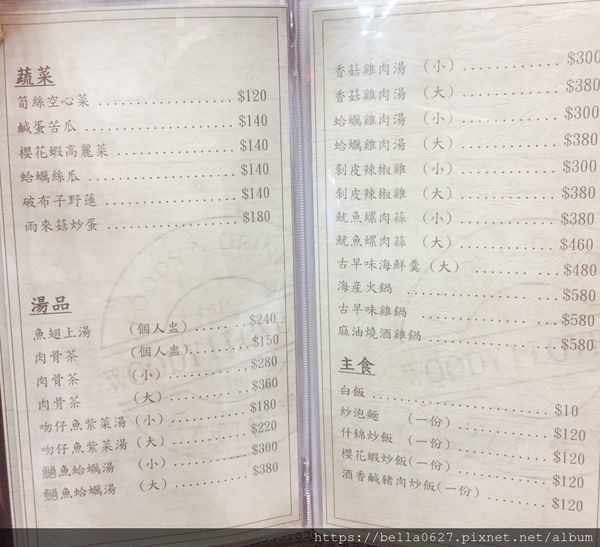 蔬菜
筍絲空心菜 .................... $120
鹹蛋苦瓜 .................... $140
櫻花蝦高麗菜 .................... $140
蛤蠣絲瓜 .................... $140
破布子野蓮 .................... $140
雨來菇炒蛋 .................... $180
湯品
魚翅上湯 (個人盅) ....... $240
肉骨茶 (個人盅) ....... $150
肉骨茶 (小) .............. $280
肉骨茶 (大) .............. $360
吻仔魚紫菜湯 (小) .......... $180
吻仔魚紫菜湯 (大) .......... $220
鱺魚蛤蠣湯 (小) .......... $300
鱺魚蛤蠣湯 (大) .......... $380
香菇雞肉湯 (小) ............ $300
香菇雞肉湯 (大) ............ $380
蛤蠣雞肉湯 (小) ............ $300
蛤蠣雞肉湯 (大) ............ $380
剝皮辣椒雞 (小) ............ $300
剝皮辣椒雞 (大) ............ $380
魷魚螺肉蒜 (小) ............ $380
魷魚螺肉蒜 (大) ............ $460
古早味海鮮羹 (大) ........... $480
海產火鍋 .................... $580
古早味雞鍋 .................... $580
麻油燒酒雞鍋 .................... $580
主食
白飯 .................... $10
炒泡麵 (一份) ............ $120
什錦炒飯 (一份) ............ $120
櫻花蝦炒飯(一份) ............ $120
酒香鹹豬肉炒飯(一份) ......... $120
https://bella0627.pixnet.net/album